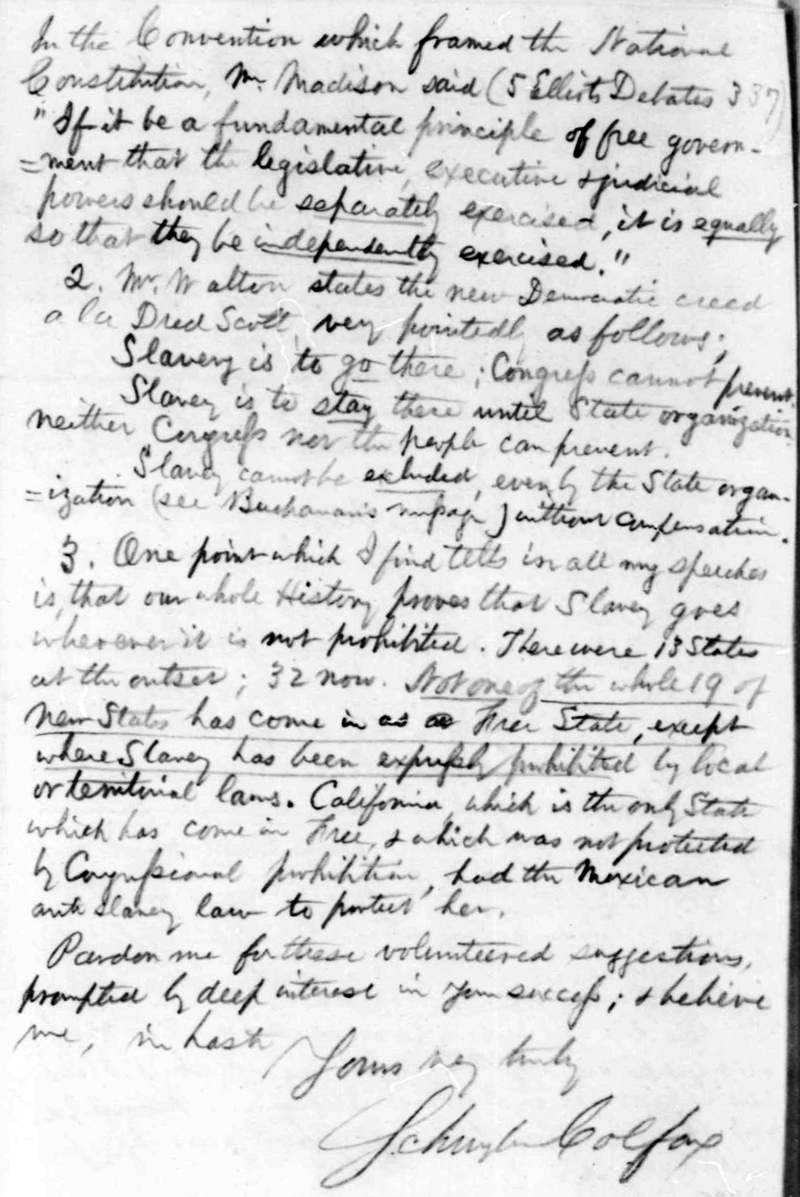 In the Convention which framed the National
Constitution, Mr. Madison said (5 Elliot's Debates 337)
"If it be a fundamental principle of free govern-
=ment that the legislative, executive & judicial
powers should be separately exercised, it is equally
so that they be independently exercised."
2. Mr. Walton states the new Democratic creed
a la Dred Scott, very pointedly as follows;
Slavery is to go there; Congress cannot prevent.
Slavery is to stay there until State organization
neither Congress nor the people can prevent.
Slavery cannot be excluded, even by the State organ-
=ization (see Buchanan's message) without compensation.
3. One point which I find tells in all my speeches
is, that our whole History proves that Slavery goes
wherever it is not prohibited. There were 13 States
at the outset; 32 now. Not one of the whole 19 of
new States has come in as a Free State, except
where Slavery has been expressly prohibited by local
or territorial laws. California, which is the only State
which has come in Free, & which was not protected
by Congressional prohibition, had the Mexican
anti slavery law to protect her.
Pardon me for these volunteered suggestions,
prompted by deep interest in your success; & believe
me, in haste
Yours very truly
Schuyler Colfax